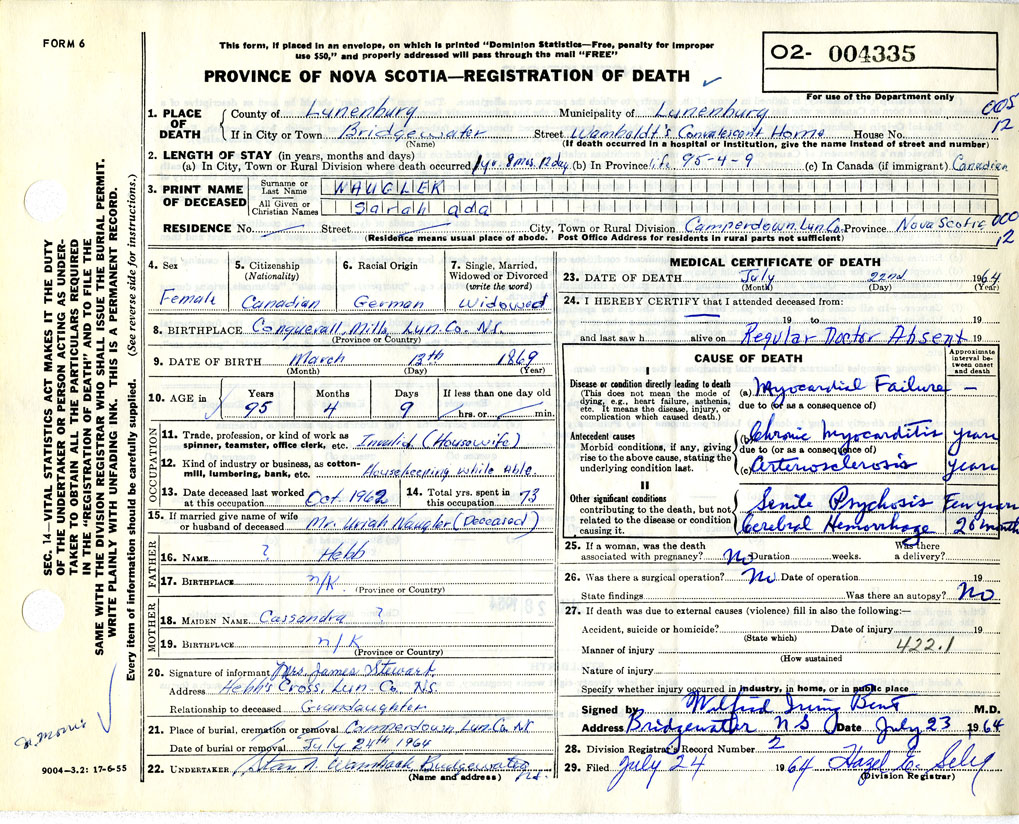 FORM 6
This form, if placed in an envelope, on which is printed "Dominion Statistics—Free, penalty for improper
use $50," and properly addressed will pass through the mail "FREE"
PROVINCE OF NOVA SCOTIA—REGISTRATION OF DEATH
02- 004335
For use of the Department only
005
12
1. PLACE OF DEATH
County of Lunenburg Municipality of Lunenburg
If in City or Town Bridgewater Street Wamboldt's Convalescent Home House No.
(Name) (If death occurred in a hospital or institution, give the name instead of street and number)
2. LENGTH OF STAY (in years, months and days)
(a) In City, Town or Rural Division where death occurred 1 yr. 8 mos. 12 day (b) In Province life 95-4-9 (c) In Canada (if immigrant) Canadian
3. PRINT NAME OF DECEASED
Surname or Last Name WAUGLER
All Given or Christian Names Sarah ada
RESIDENCE No. Street City, Town or Rural Division Camperdown Lun. Co. Province Nova Scotia 000
12
(Residence means usual place of abode. Post Office Address for residents in rural parts not sufficient)
4. Sex Female
5. Citizenship (Nationality) Canadian
6. Racial Origin German
7. Single, Married, Widowed or Divorced (write the word) Widowed
8. BIRTHPLACE Conquerall Mills, Lun. Co. N.S.
(Province or Country)
9. DATE OF BIRTH March 13th 1869
(Month) (Day) (Year)
10. AGE in Years 95 Months 4 Days 9 If less than one day old hrs. or min.
OCCUPATION
11. Trade, profession, or kind of work as spinner, teamster, office clerk, etc. Invalid (Housewife)
12. Kind of industry or business, as cotton-mill, lumbering, bank, etc. Housekeeping while able.
13. Date deceased last worked at this occupation Oct. 1962
14. Total yrs. spent in this occupation 73
15. If married give name of wife or husband of deceased Mr. Uriah Waugler (Deceased)
FATHER
16. NAME ? Hebb
17. BIRTHPLACE n/K.
(Province or Country)
MOTHER
18. MAIDEN NAME Cassandra ?
19. BIRTHPLACE n/K
(Province or Country)
20. Signature of informant Mrs. James Stewart
Address Hebb's Cross, Lun. Co. N.S.
Relationship to deceased Grandaughter
21. Place of burial, cremation or removal Camperdown, Lun. Co. NS
Date of burial or removal July 24th 1964
22. UNDERTAKER Bridgewater, N.S.
(Name and address)
MEDICAL CERTIFICATE OF DEATH
23. DATE OF DEATH July 22nd 1964
(Month) (Day) (Year)
24. I HEREBY CERTIFY that I attended deceased from:
19 to 19
and last saw h alive on Regular Doctor Absent 19
CAUSE OF DEATH
Approximate interval between onset and death
I
Disease or condition directly leading to death
(This does not mean the mode of dying, e.g., heart failure, asthenia, etc. It means the disease, injury, or complication which caused death.)
(a) Myocardial Failure —
due to (or as a consequence of)
Antecedent causes
Morbid conditions, if any, giving rise to the above cause, stating the underlying condition last.
(b) Chronic Myocarditis years
due to (or as a consequence of)
(c) Arteriosclerosis years
II
Other significant conditions
contributing to the death, but not related to the disease or condition causing it.
Senile Psychosis Few years
Cerebral Hemorrhage 20 months
25. If a woman, was the death associated with pregnancy? No Duration weeks. Was there a delivery?
26. Was there a surgical operation? No Date of operation 19
State findings Was there an autopsy? No
27. If death was due to external causes (violence) fill in also the following:—
Accident, suicide or homicide? Date of injury 19
(State which)
Manner of injury 422.1
(How sustained
Nature of injury
Specify whether injury occurred in industry, in home, or in public place
Signed by Wilfred Irving Bent M.D.
Address Bridgewater N S Date July 23 1964
28. Division Registrar's Record Number 2
29. Filed July 24 1964 Hazel E.
(Division Registrar)
SEC. 14—VITAL STATISTICS ACT MAKES IT THE DUTY
OF THE UNDERTAKER OR PERSON ACTING AS UNDER-
TAKER TO OBTAIN ALL THE PARTICULARS REQUIRED
IN THE "REGISTRATION OF DEATH" AND TO FILE THE
SAME WITH THE DIVISION REGISTRAR WHO SHALL ISSUE THE BURIAL PERMIT.
WRITE PLAINLY WITH UNFADING INK. THIS IS A PERMANENT RECORD.
Every item of information should be carefully supplied. (See reverse side for instructions.)
9004-3.2: 17-6-55